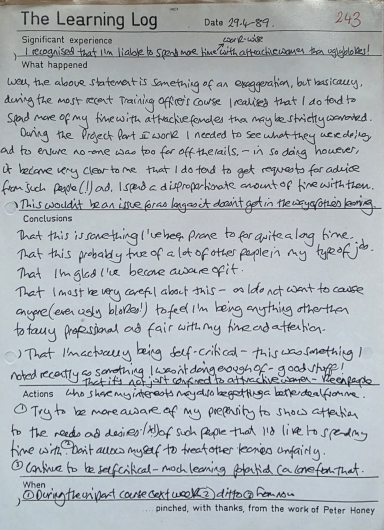 The Learning Log Date 29.4.89. 243
Significant experience work-wise
I recognised that I'm liable to spend more time with attractive women than ugly blokes!
What happened
Well, the above statement is something of an exaggeration, but basically,
during the most recent Training Officer's Course I realised that I do tend to
spend more of my time with attractive females than may be strictly warranted.
During the Project Part II work I needed to see what they were doing,
ad to ensure no-one was too far off the rails, - in so doing however,
it became very clear to me that I do tend to get requests for advice
from such people (!) ad I spend a disproportionate amount of time with them.
This wouldn't be an issue for so long as it doesn't get in the way of others learning
Conclusions
That this is something I've been prone to for quite a long time.
That this probably true of a lot of other people in my type of job.
That I'm glad I've become aware of it.
That I must be very careful about this - as I do not want to cause
anyone (even ugly blokes!) to feel I'm being anything other than
totally professional ad fair with my time and attention.
That I'm actually being self-critical - this was something I
noted recently as something I wasn't doing enough of - good stuff!
That it's not just confined to attractive women - the people
Actions who share my interests may also be getting a better deal from me.
① Try to be more aware of my propensity to show attention
to the needs ad desires of such people that I'd like to spend my
time with. ② Don't allow myself to treat other learners unfairly.
③ Continue to be self critical - much learning potential can come from that.
When
① During the in part course next week ② ditto ③ From now
.... pinched, with thanks, from the work of Peter Honey